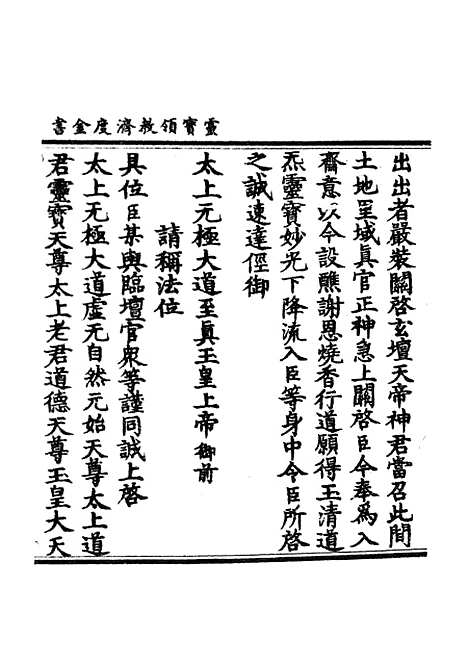 靈寶領敎濟度金書
出出者嚴裝關啓玄壇天帝神君當召此間
土地里域真官正神急上關啓臣今奉爲入
齋意以今設醮謝恩燒香行道願得玉清道
炁靈寶妙光下降流入臣等身中令臣所啓
之誠速達徑御
太上无極大道至真玉皇上帝御前
請稱法位
具位臣某與臨壇官衆等謹同誠上啓
太上无極大道虛无自然元始天尊太上道
君靈寶天尊太上老君道德天尊玉皇大天